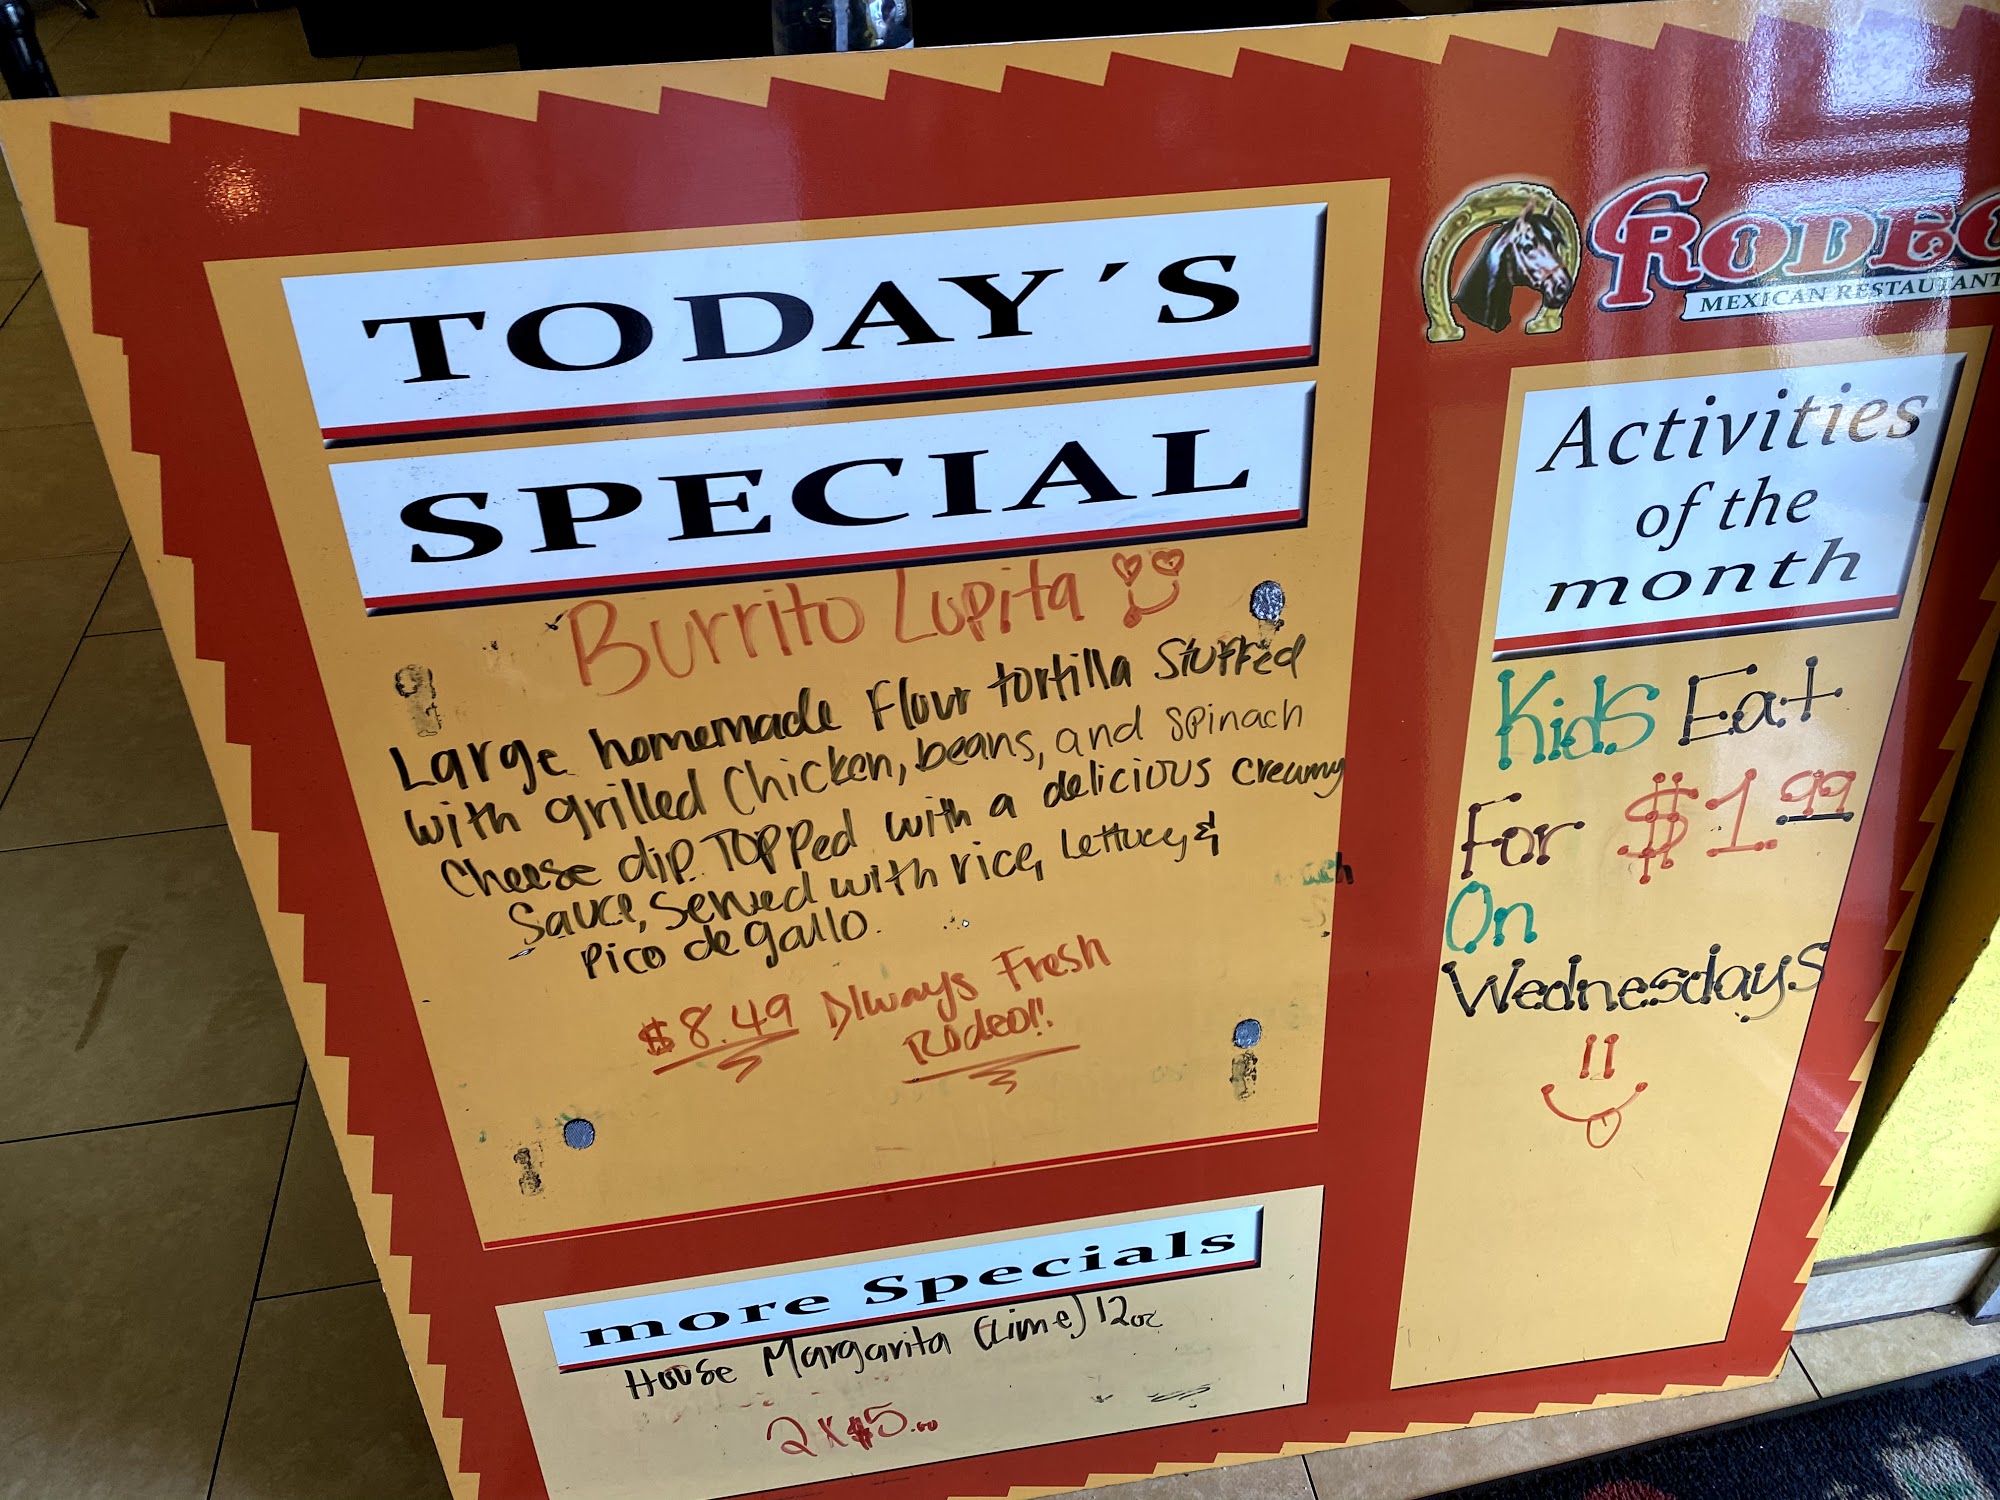 TODAY´S
SPECIAL
Burrito Lupita
Large homemade flour tortilla stuffed
with grilled chicken, beans, and spinach
cheese dip. Topped with a delicious creamy
sauce, served with rice, lettuce, &
pico de gallo.
$8.49 Always Fresh
Rodeo!!
more Specials
House Margarita (Lime) 12oz
2 x $5.00
RODEO
MEXICAN RESTAURANT
Activities
of the
month
Kids Eat
For $1.99
On
Wednesdays